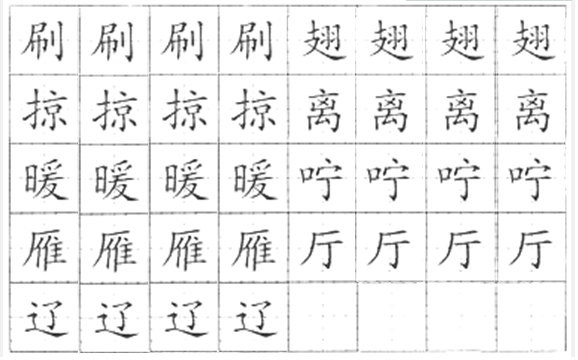 刷刷刷刷翅翅翅翅
掠掠掠掠离离离离
暖暖暖暖咛咛咛咛
雁雁雁雁厅厅厅厅
辽辽辽辽